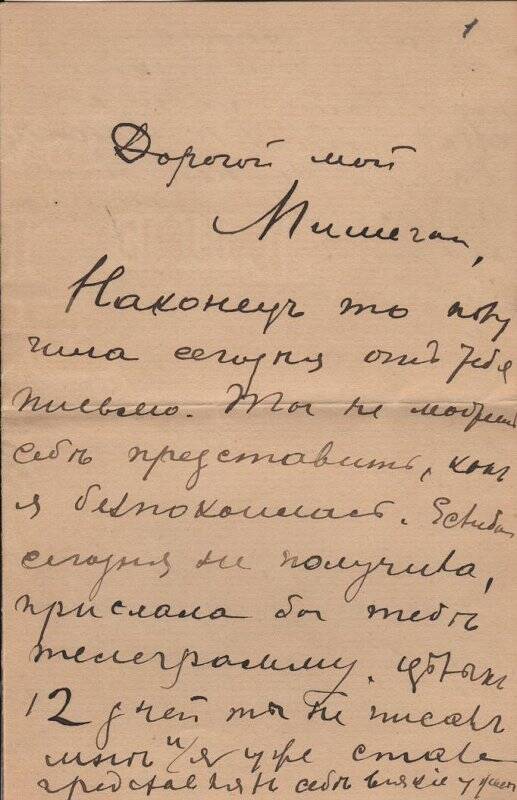 1
Дорогой мой
Мишеган,
Наконецъ то полу
чила сегодня отъ тебя
письмо. Ты не можешь
себѣ представить, какъ
я безпокоилась. Еслибы
сегодня не получила,
прислала бы тебѣ
телеграмму. Цѣлыхъ
12 дней ты не писалъ
мнѣ и я уже стала
представлять себѣ всякіе ужасы